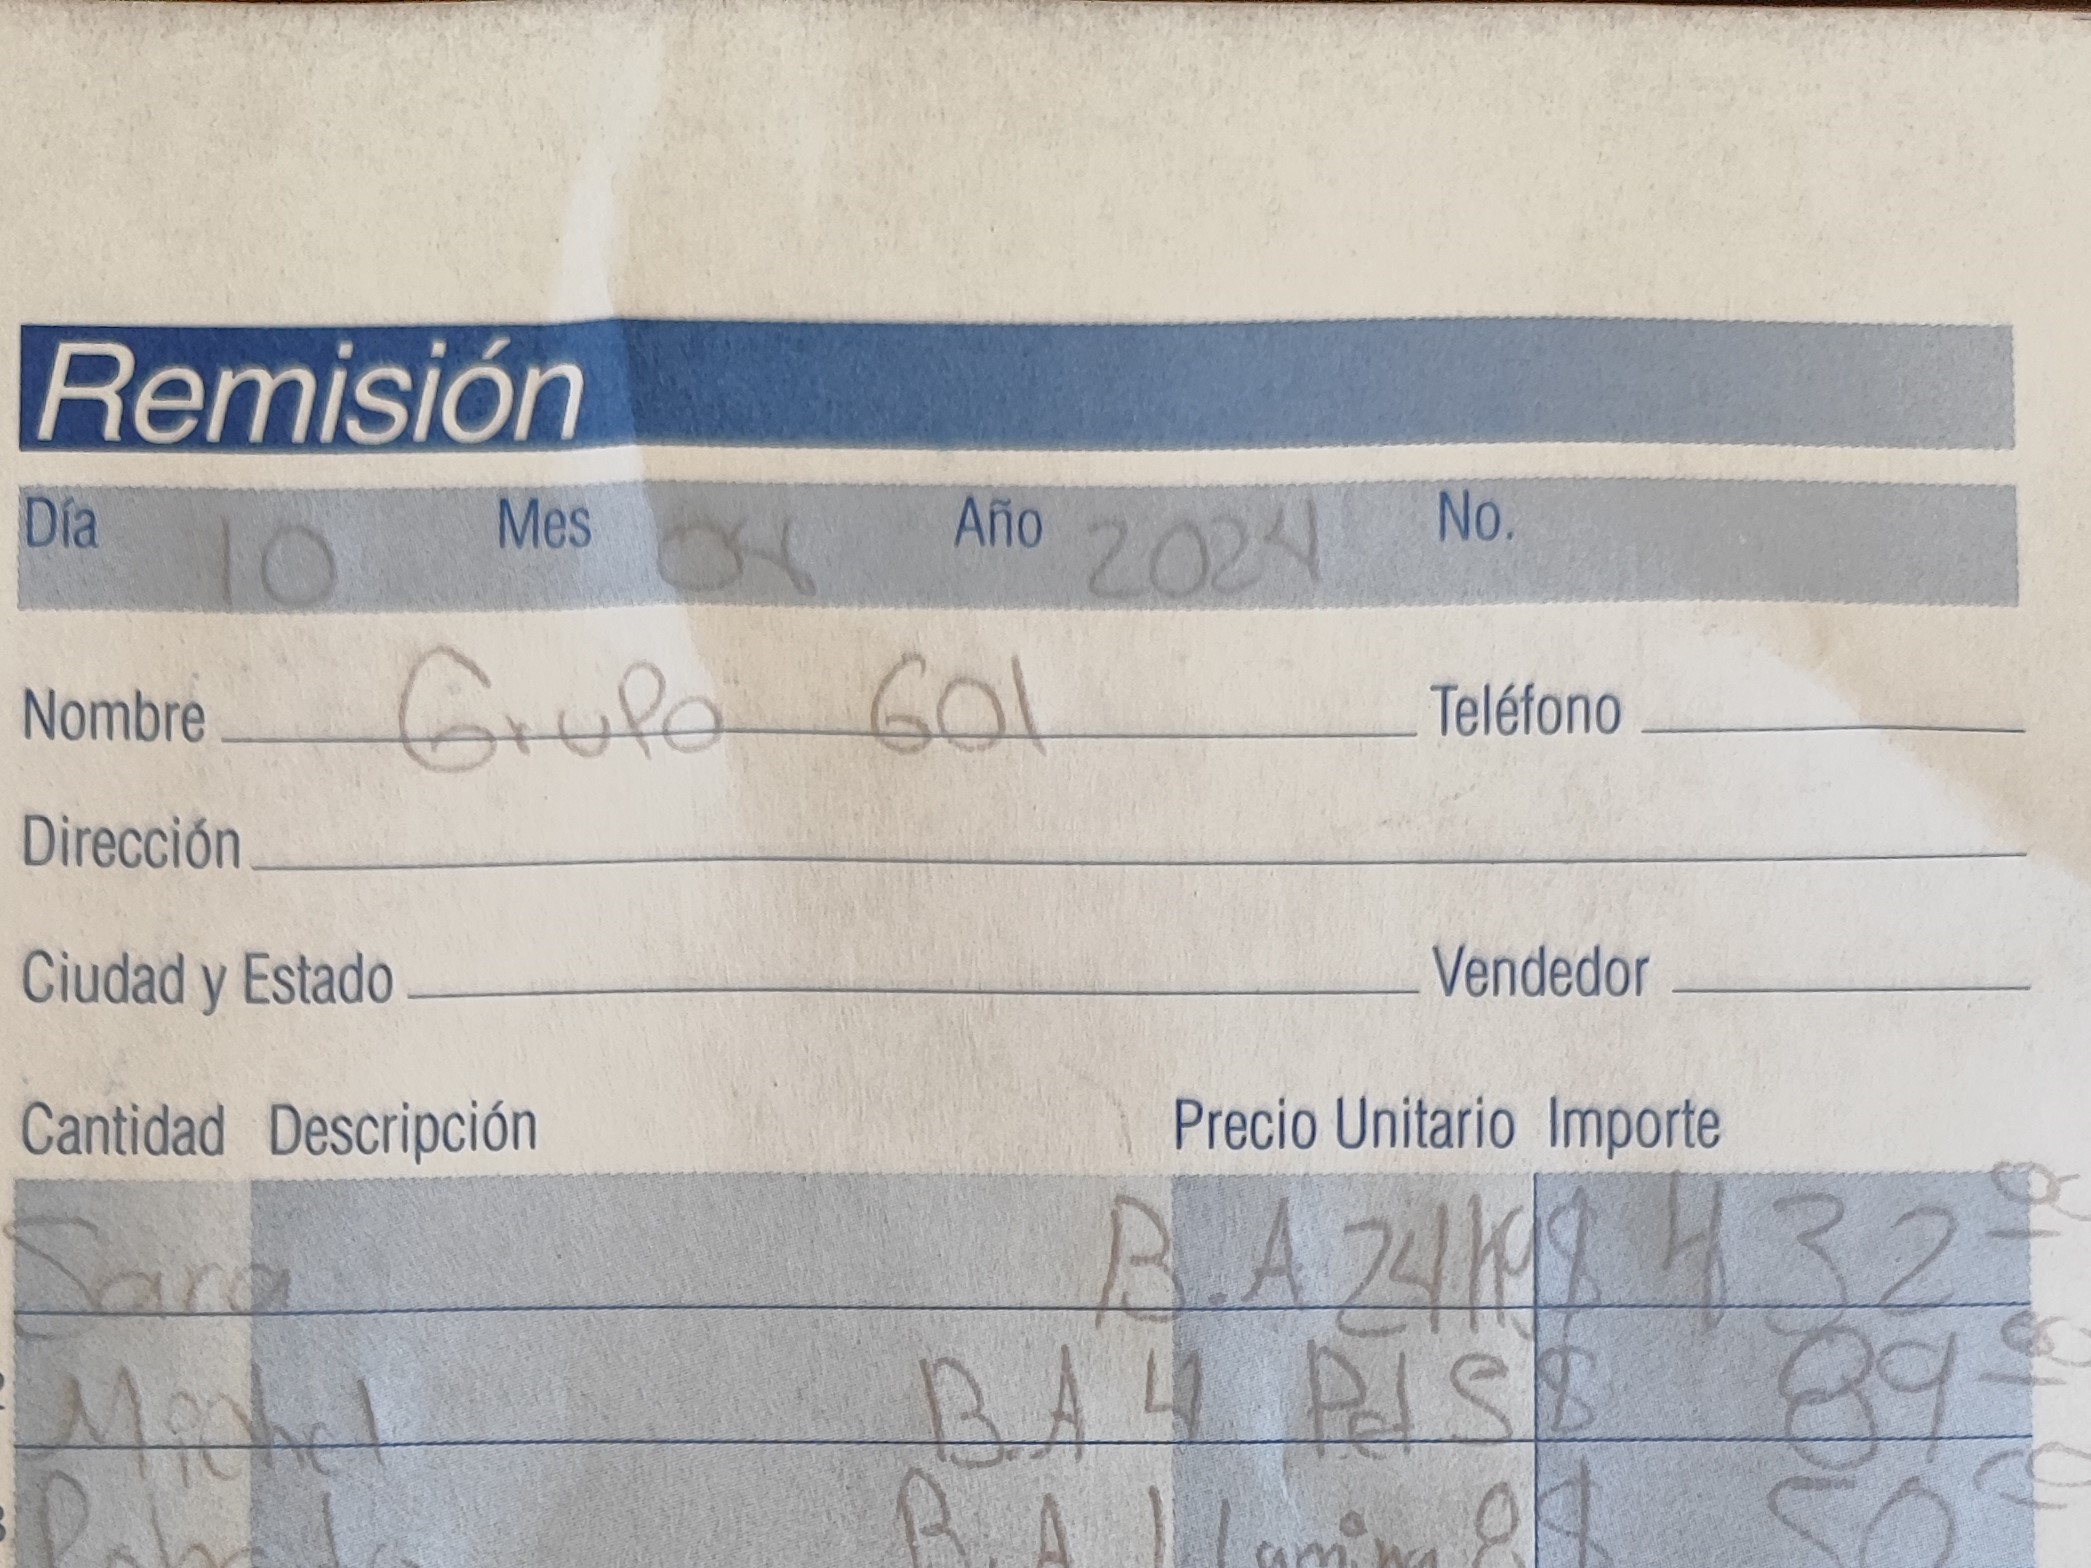 Remisión
Día 10 Mes 04 Año 2024 No.
Nombre Grupo 601 Teléfono
Dirección
Ciudad y Estado Vendedor
Cantidad Descripción Precio Unitario Importe
Sara B.A 24 $ 432
B.A 4 $ 89
B.A 1 $ 50